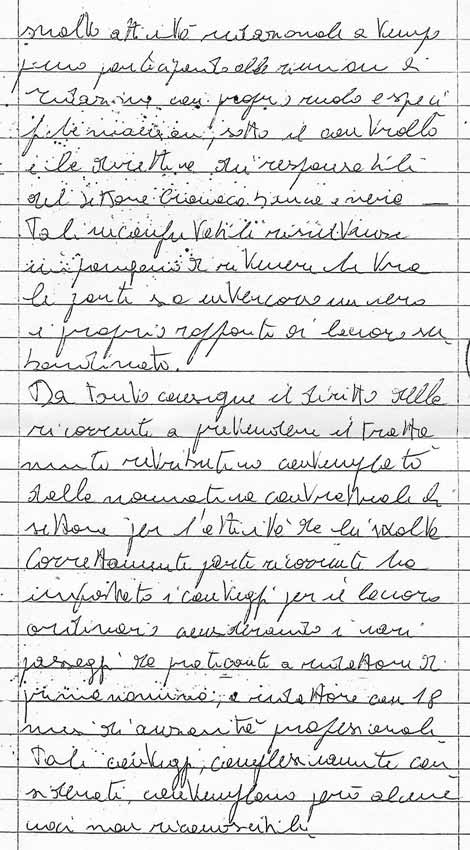 svolto attività redazionale a tempo
pieno partecipando alle riunioni di
redazione con proprio ruolo e speci
fiche mansioni, sotto il controllo
e le direttive dei responsabili
del settore cronaca bianca e nera
Tali inconfutabili risultanze
impongono di ritenere che tra
le parti sia intercorso un vero
e proprio rapporto di lavoro su
bordinato.
Da tanto consegue il diritto della
ricorrente a pretendere il tratta
mento retributivo contemplato
dalla normativa contrattuale di
settore per l'attività da lei svolta
Correttamente parte ricorrente ha
impostato i conteggi per il lavoro
ordinario considerando i vari
passaggi da praticante a redattore di
prima nomina, a redattore con 18
mesi di anzianità professionale
Tali conteggi, complessivamente con
siderati, contemplano però alcune
voci non riconoscibili